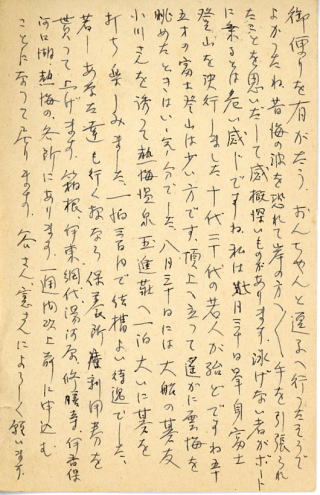 御便りを有がたう、おんちやんと逗子へ行つたそうで
よかつたね、昔海の波を恐れて岸の方へ〱手を引張られ
たことを思いだして感概深いものがあります、泳げない者がボート
に乗るとは危い感じですね、私は七月三十日単身富士
登山を決行しました、十代二十代の若人が殆どですね五十
五才の富士登山は少い方です、頂上へ立つて遥かに雲海を
眺めたときはいゝ気分でした、八月三十日には大船の碁友
小川さんを誘つて熱海温泉 荘へ一泊大いに碁を
打ち楽しみました、一泊三百円で結構よい待遇でした、
若しあなた達も行く様なら保養所 利用券を
貰つて上げます、箱根、伊東網代湯河原、修善寺、伊香保
河口湖熱海の各所にあります、一週間以上前に申込む
ことになつて居ります、 さん憲さんによろしく願います、